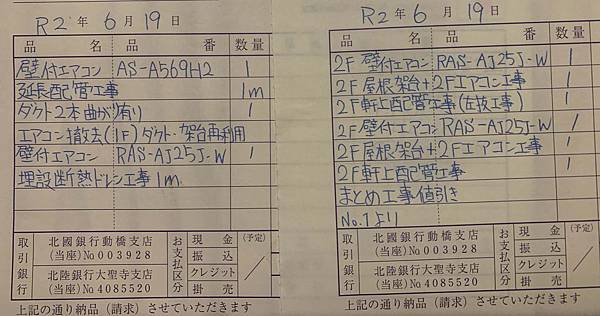 R2年 6月 19日
品名 品番 数量
壁付エアコン AS-A569H2 1
延長配管工事 1m
ダクト2本曲がり有り
エアコン撤去(1F)ダクト・架台再利用
壁付エアコン RAS-AJ25J-W 1
埋設断熱ドレン工事1m
取引銀行
北國銀行動橋支店
(当座)No003928
北陸銀行大聖寺支店
(当座)No4085520
お支払区分
現金
振込
クレジット
掛売
(予定)
/
上記の通り納品(請求)させていただきます
R2年 6月 19日
品名 品番 数量
2F壁付エアコン RAS-AJ25J-W 1
2F屋根架台+2Fエアコン工事 1
2F軒上配管工事(左抜工事) 1
2F壁付エアコン RAS-AJ25J-W 1
2F屋根架台+2Fエアコン工事 1
2F軒上配管工事 1
まとめ工事値引き
No.1より
取引銀行
北國銀行動橋支店
(当座)No003928
北陸銀行大聖寺支店
(当座)No4085520
お支払区分
現金
振込
クレジット
掛売
(予定)
/
上記の通り納品(請求)させていただきます